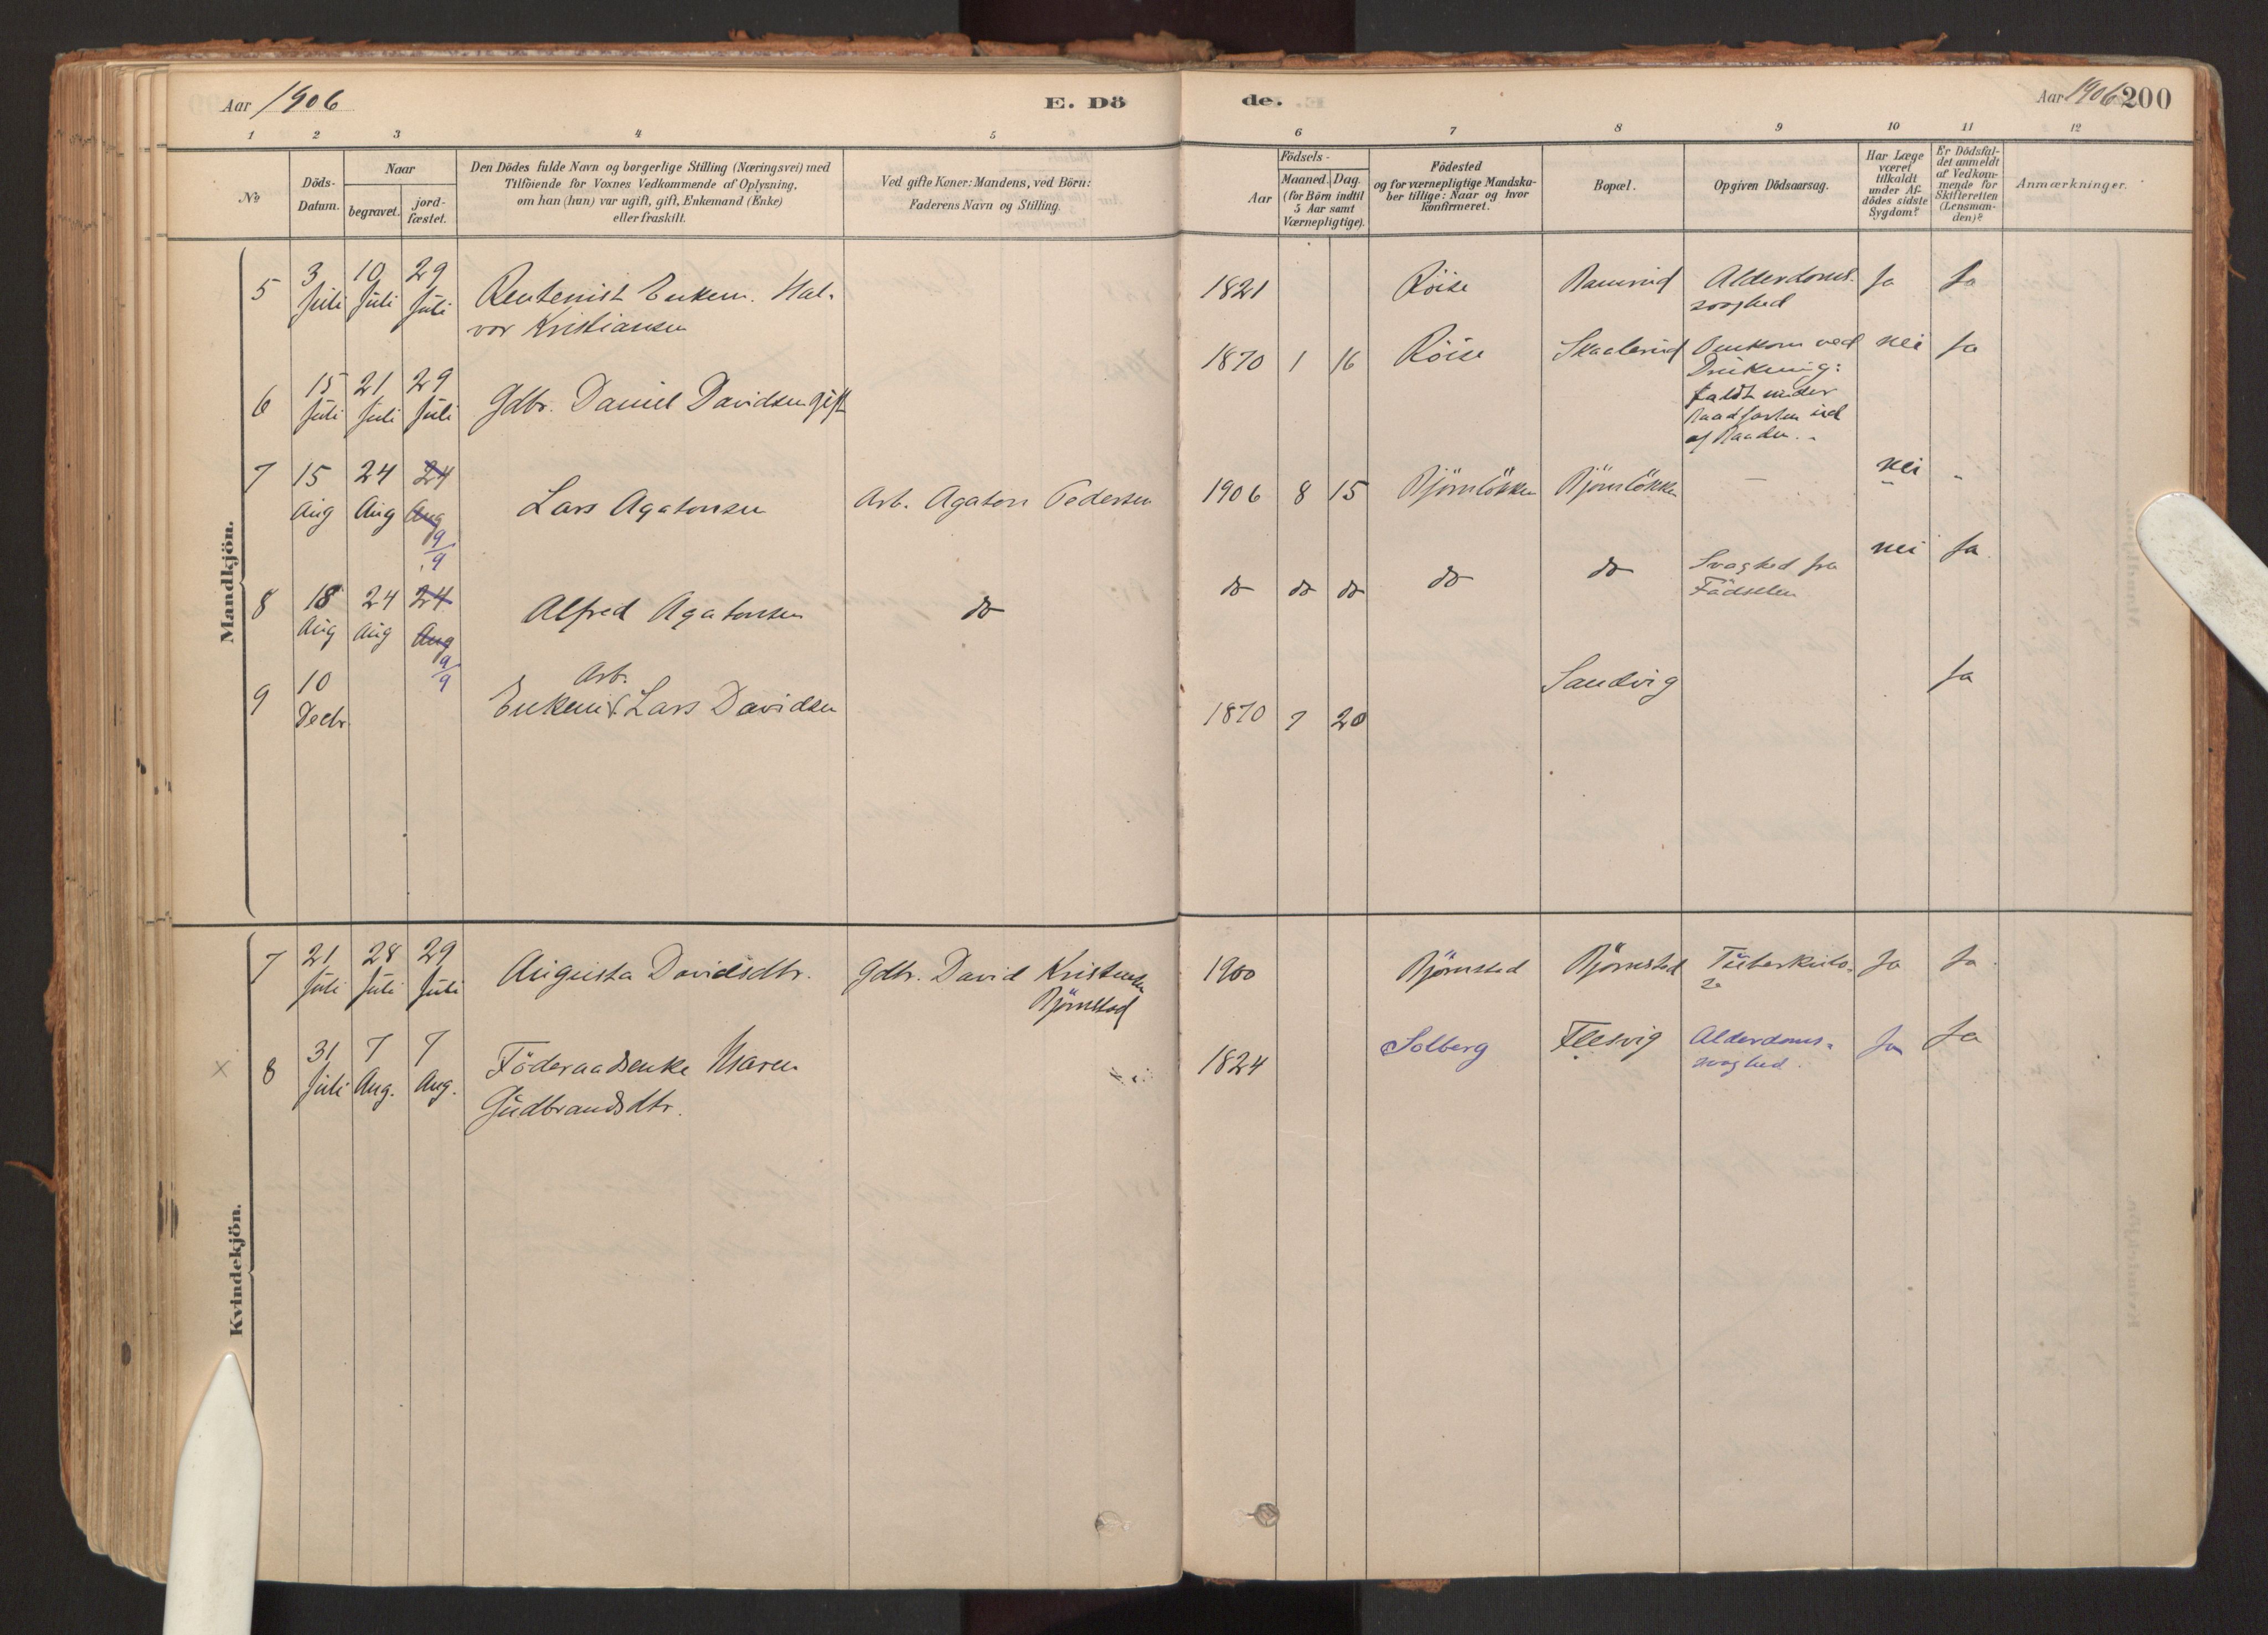 Aar 1906
E. Dö
de.
Aar 1906 200
1 2 3 4 5 6 7 8 9 10 11 12
No
Döds-
Datum.
Naar
begravet.
jord-
fæstet.
Den Dödes fulde Navn og borgerlige Stilling (Næringsvei) med
Tilföiende for Voxnes Vedkommende af Oplysning,
om han (hun) var ugift, gift, Enkemand (Enke)
eller fraskilt.
Ved gifte Koner: Mandens, ved Börn:
Faderens Navn og Stilling.
Födsels-
Aar
Maaned.
Dag.
(for Börn indtil
5 Aar samt
Værnepligtige).
Födested
og for værnepligtige Mandska-
ber tillige: Naar og hvor
konfirmeret.
Bopæl.
Opgiven Dödsaarsag.
Har Læge
været
tilkaldt
under Af-
dödes sidste
Sygdom?
Er Dödsfal-
det anmeldt
af Vedkom-
mende for
Skifteretten
(Lensman-
den)?
Anmærkninger.
Mandkjön.
5 3 Juli 10 Juli 29 Juli Rentenist Enkem. Hal-
vor Kristiansen
1821 Röise Ramrud Alderdoms-
svaghed Ja Ja
6 15 Juli 21 Juli 29 Juli Gdbr. Daniel Davidsen gift
1870 1 16 Röise Skaalerud Omkom ved
Drukning:
faldt under
Baadfarten ud
af Baaden. nei Ja
7 15 Aug 24 Aug 24 Aug 9/9 Lars Agatonsen Arb. Agaton Pedersen
1906 8 15 Björnlökken Björnlökken — nei -
8 18 Aug 24 Aug 24 Aug 9/9 Alfred Agatonsen do
do do do do do Svaghed fra
Födselen nei Ja.
9 10 Decbr. Arb.
Enkem. Lars Davidsen
1870 7 20 Sandvig Ja
Kvindekjön.
7 21 Juli 28 Juli 29 Juli Augusta Davidsdtr. Gdbr. David Kristensen
Björnstad
1900 Björnstad Björnstad Tuberkulo-
se Ja Ja.
x 8 31 Juli 7 Aug. 7 Aug. Föderaadsenke Maren
Gudbrandsdtr.
1824 Solberg Flesvig Alderdoms-
svaghed. Ja Ja